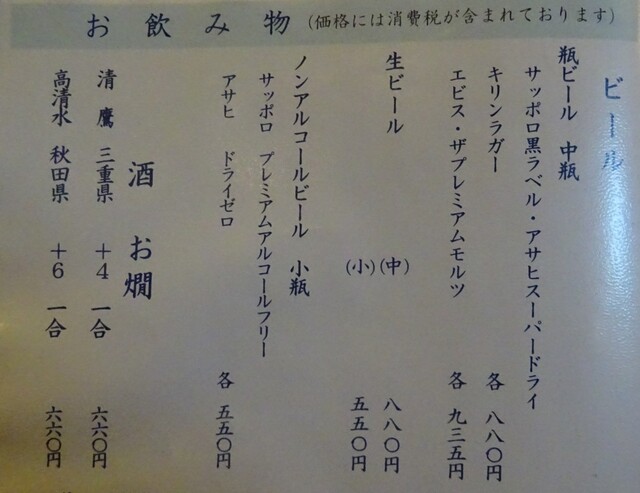 お飲み物 (価格には消費税が含まれております)
ビール
瓶ビール 中瓶
サッポロ黒ラベル・アサヒスーパードライ
キリンラガー 各 八八〇円
エビス・ザプレミアムモルツ 各 九三五円
生ビール (中) 八八〇円
(小) 五五〇円
ノンアルコールビール 小瓶
サッポロ プレミアムアルコールフリー
アサヒ ドライゼロ 各 五五〇円
酒 お燗
清鷹 三重県 +4 一合 六六〇円
高清水 秋田県 +6 一合 六六〇円